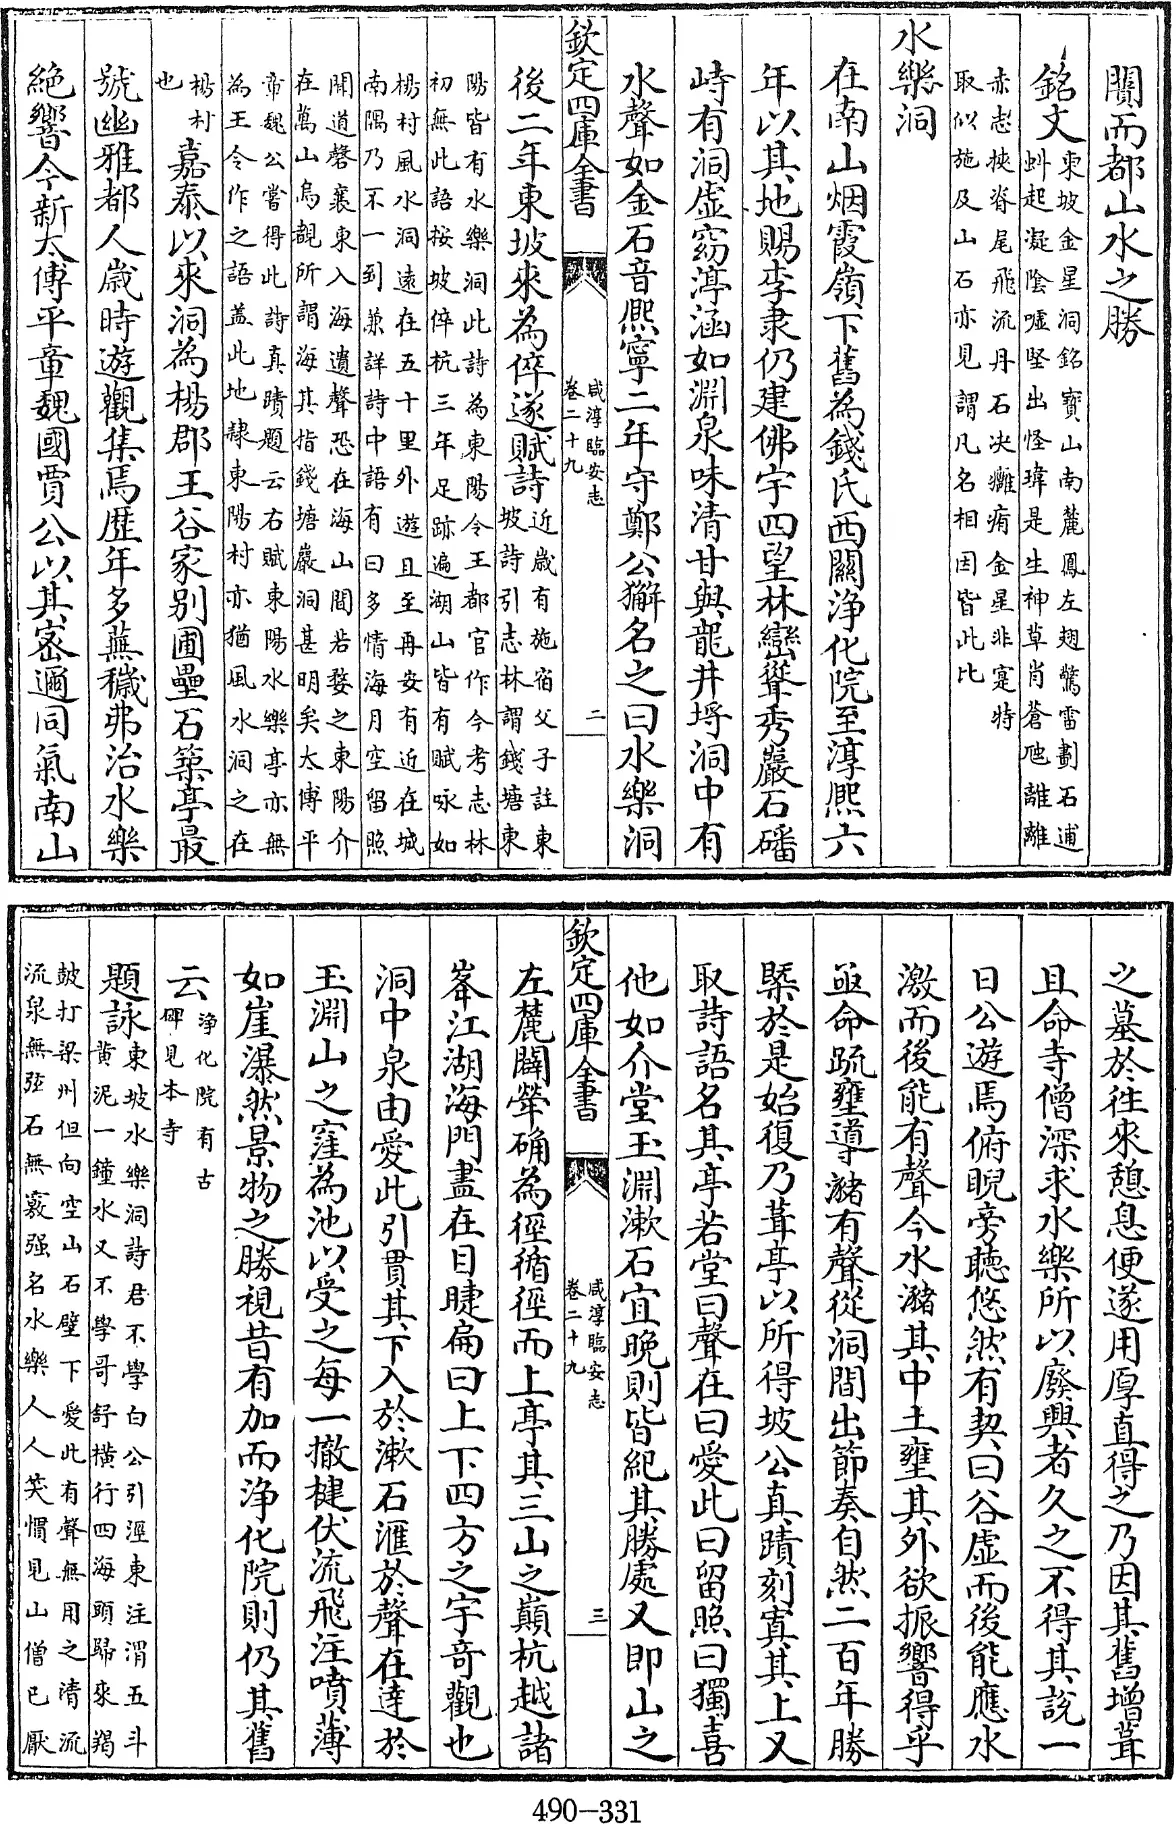 闠而都山水之勝
銘文東坡金星洞銘寶山南麓鳳左翅驚雷劃石逋
蚪起凝陰噓堅出怪瑋是生神草肖蒼虺離離
赤志挾脊尾飛流丹石决癰痏金星非寔特
取似施及山石亦見謂凡名相因皆此比
水樂洞
在南山烟霞嶺下舊為錢氏西關淨化院至淳熙六
年以其地賜李隶仍建佛宇四望林巒聳秀巖石磻
峙有洞虛窈渟涵如淵泉味清甘與龍井埒洞中有
水聲如金石音熙寧二年守鄭公獬名之曰水樂洞
欽定四庫全書
咸淳臨安志
卷二十九
二
後二年東坡來為倅遂賦詩近歲有施宿父子註東
坡詩引志林謂錢塘東
陽皆有水樂洞此詩為東陽令王都官作今考志林
初無此語按坡倅杭三年足跡遍湖山皆有賦咏如
楊村風水洞遠在五十里外遊且至再安有近在城
南隅乃不一到兼詳詩中語有曰多情海月空留照
聞道磬襄東入海遺聲恐在海山間若婺之東陽介
在萬山烏覩所謂海其指錢塘巖洞甚明矣太傅平
章魏公嘗得此詩真蹟題云右賦東陽水樂亭亦無
為王令作之語葢此地隸東陽村亦猶風水洞之在
楊村
也
嘉泰以來洞為楊郡王谷家别圃壘石築亭最
號幽雅都人歲時遊觀集焉歷年多蕪穢弗治水樂
絶響今新太傅平章魏國賈公以其密邇同氣南山
之墓於徃來憩息便遂用厚直得之乃因其舊增葺
且命寺僧深求水樂所以廢興者久之不得其説一
日公遊焉俯睨旁聽悠然有契曰谷虛而後能應水
激而後能有聲今水瀦其中土壅其外欲振響得乎
亟命疏壅導瀦有聲從洞間出節奏自然二百年勝
槩於是始復乃葺亭以所得坡公真蹟刻寘其上又
取詩語名其亭若堂曰聲在曰愛此曰留照曰獨喜
他如介堂玉淵漱石宜晚則皆紀其勝處又即山之
欽定四庫全書
咸淳臨安志
卷二十九
三
左麓闢犖确為徑循徑而上亭其三山之巔杭越諸
峯江湖海門盡在目睫扁曰上下四方之宇奇觀也
洞中泉由愛此引貫其下入於漱石滙於聲在逹於
玉淵山之窪為池以受之每一撤楗伏流飛注噴薄
如崖瀑然景物之勝視昔有加而淨化院則仍其舊
云淨化院有古
碑見本寺
題詠東坡水樂洞詩君不學白公引涇東注渭五斗
黄泥一鍾水又不學哥舒横行四海頭歸來羯
鼓打梁州但向空山石壁下愛此有聲無用之清流
流泉無弦石無竅强名水樂人人笑慣見山僧已厭
490-331